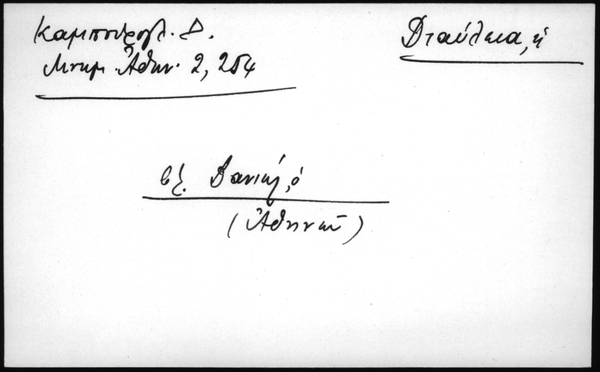 Καμπούρογλ. Δ.
Μνημ. Ἀθην. 2, 254
Διαύλεια, ἡ
ἐξ. Δανιήλ, ὁ
(Ἀθηνῶν)